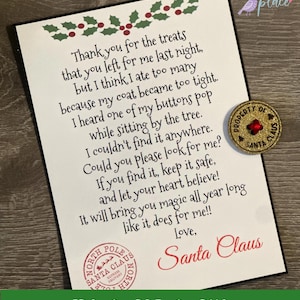 place
Thank you for the treats
that you left for me last night,
but I think I ate too many
because my coat became too tight.
I heard one of my buttons pop
while sitting by the tree.
I couldn't find it anywhere.
Could you please look for me?
If you find it, keep it safe,
and let your heart believe!
It will bring you magic all year long
like it does for me!!
Love,
Santa Claus
PROPERTY OF
SANTA CLAUS
NORTH POLE
SANTA CLAUS